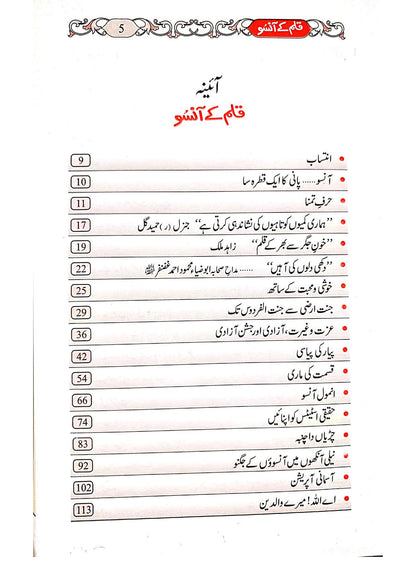 قلم کے آنسو 5
آئینہ
قلم کے آنسو
• انتساب 9
• آنسو...... پانی کا ایک قطرہ سا 10
• حرفِ تمنا 11
• ’’ہماری کمیوں کوتاہیوں کی نشاندہی کرتی ہے‘‘ جنرل (ر) حمید گل 17
• ’’خونِ جگر سے بھر کے قلم‘‘ زاہد ملک 19
• ’’دکھی دلوں کی آہیں‘‘ ...... مداحِ صحابہ ابوضیاء محمود احمد غضنفر 22
• خوشی و محبت کے ساتھ 25
• جنت ارضی سے جنت الفردوس تک 29
• عزت و غیرت، آزادی اور جشن آزادی 36
• پیار کی پیاسی 42
• قسمت کی ماری 54
• انمول آنسو 66
• حقیقی اسٹیٹس کو اپنائیں 74
• چڑیاں دا چنبہ 83
• نیلی آنکھوں میں آنسوؤں کے جگنو 92
• آسمانی آپریشن 102
• اے اللہ! میرے والدین 113